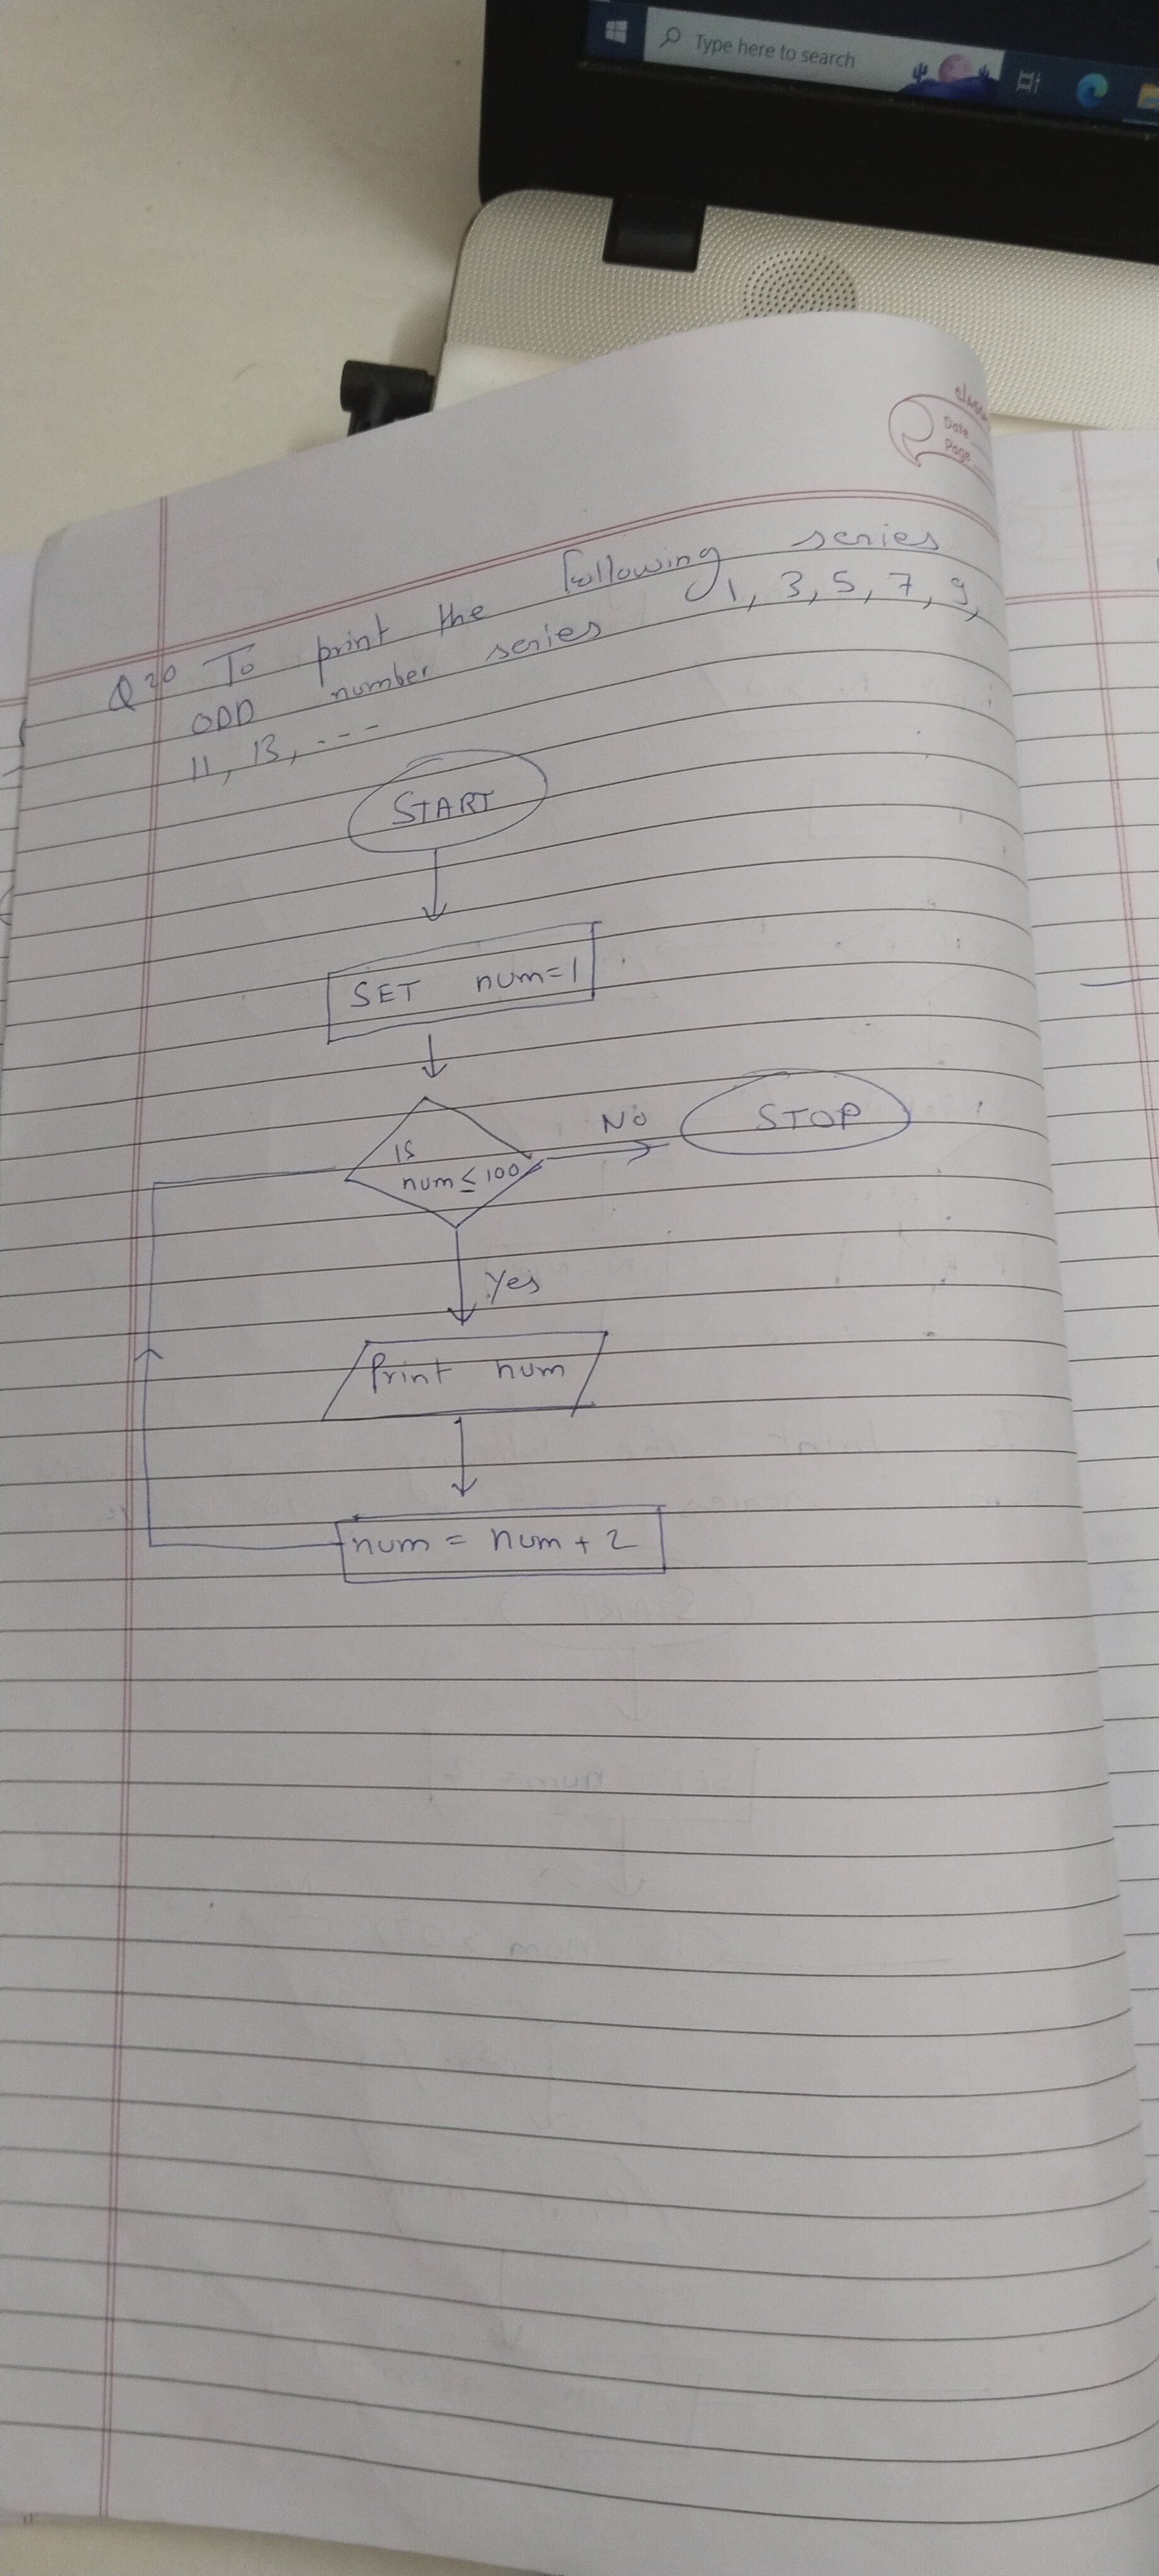 Type here to search
classm
Date
Page
Q20 To print the following series
ODD number series 1, 3, 5, 7, 9,
11, 13, ---
START
SET num=1
IS
num ≤ 100
No
STOP
Yes
Print num
num = num + 2